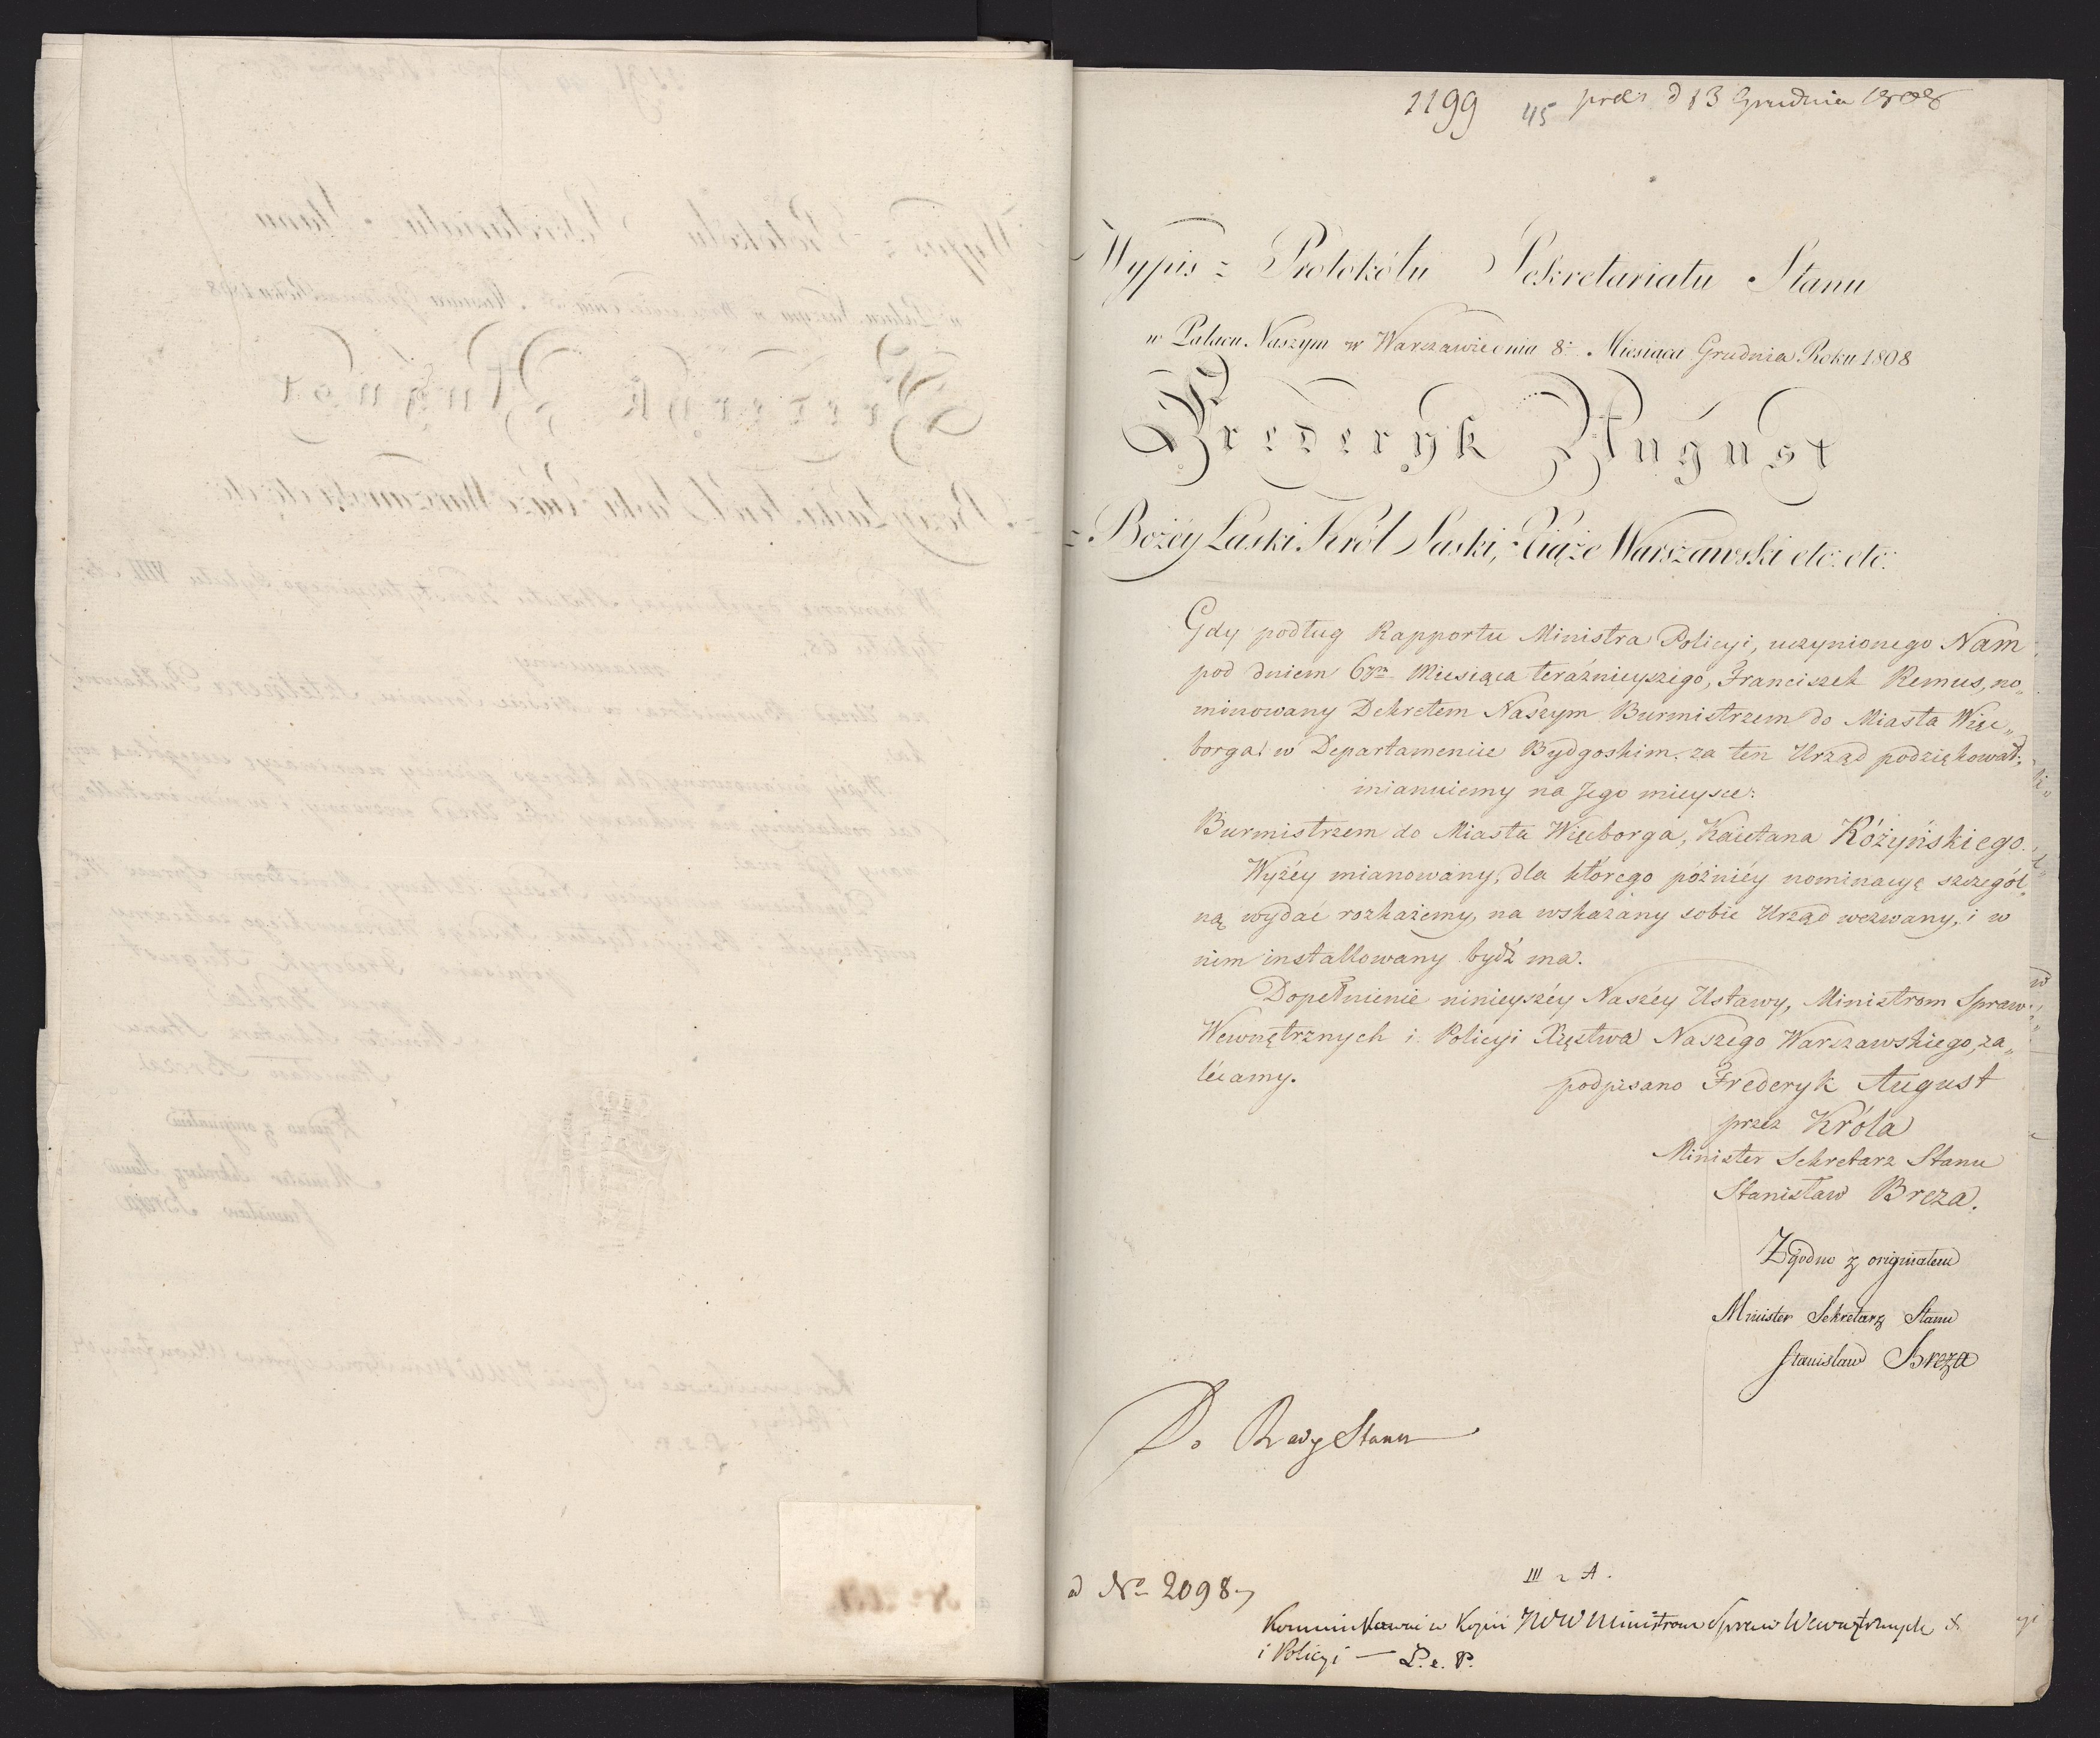 1199 45 prez: d 13 Grudnia 1808
Wypis z Protokółu Sekretariatu Stanu
w Pałacu Naszym w Warszawie dnia 8: Miesiąca Grudnia Roku 1808
Frederyk August
z Bożéy Łaski Król Saski, Xiąże Warszawski etc: etc:
Gdy podług Rapportu Ministra Policyi, uczynionego Nam
pod dniem 6ym Miesiąca teráznieyszégo, Franciszek Remus, no„
minowany Dekretem Naszym Burmistrzem do Miasta Więc„
borga w Departamencie Bydgoskim, za ten Urząd podziękował;
mianuiemy na Jego mieysce:
Burmistrzem do Miasta Więcborga, Kaietana Różyńskiego.
Wyżéy mianowany, dla którego późniéy nominacyę szczegól„
ną wydać rozkażemy, na wskazany sobie Urząd wezwany, i w
nim installowany bydź ma.
Dopełnienie ninieyszéy Naszéy Ustawy, Ministrom Spraw
Wewnętrznych i Policyi Xięstwa Naszego Warszawskiego, za„
lécamy.
podpisano Frederyk August
przez Króla
Minister Sekretarz Stanu
Stanisław Breza.
Zgodno z originałem
Minister Sekretarz Stanu
Stanisław Breza
Do Rady Stanu
ad No 2098
III 2 A.
Kommunikować w Kopii JWW Ministrom Spraw Wewnętrznych
i Policyi — L. e. P.